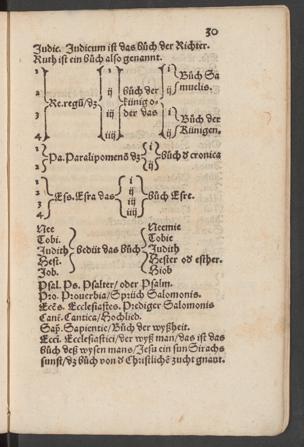 30
Judic. Judicum ist das bůch der Richter.
Ruth ist ein bůch also genannt.
1 i i Bůch Sa
2 ij bůch der ij muelis.
Re.regū/dz künig o-
3 iij der das i Bůch der
4 iiij ij Künigen.
1 Pa. Paralipomenō dz i bůch d cronica
2 ij
1 i
2 Es. Esra das ij bůch Esre.
3 iij
4 iiij
Nee Neemie
Tobi. Tobie
Judith bedüt das bůch Judith
Hest. Hester od esther.
Job. Hiob
Psal. Ps. Psalter/ oder Psalm.
Pro. Prouerbia/ Sprüch Salomonis.
Eccs. Ecclesiastes. Prediger Salomonis
Cant. Cantica/ Hochlied.
Sap. Sapientie/ Bůch der wyßheit.
Eccl. Ecclesiastici/ der wyß man/ das ist das
bůch deß wysen mans/ Jesu ein sun Sirachs
sunst/ dz bůch von d Christlichē zucht gnant.